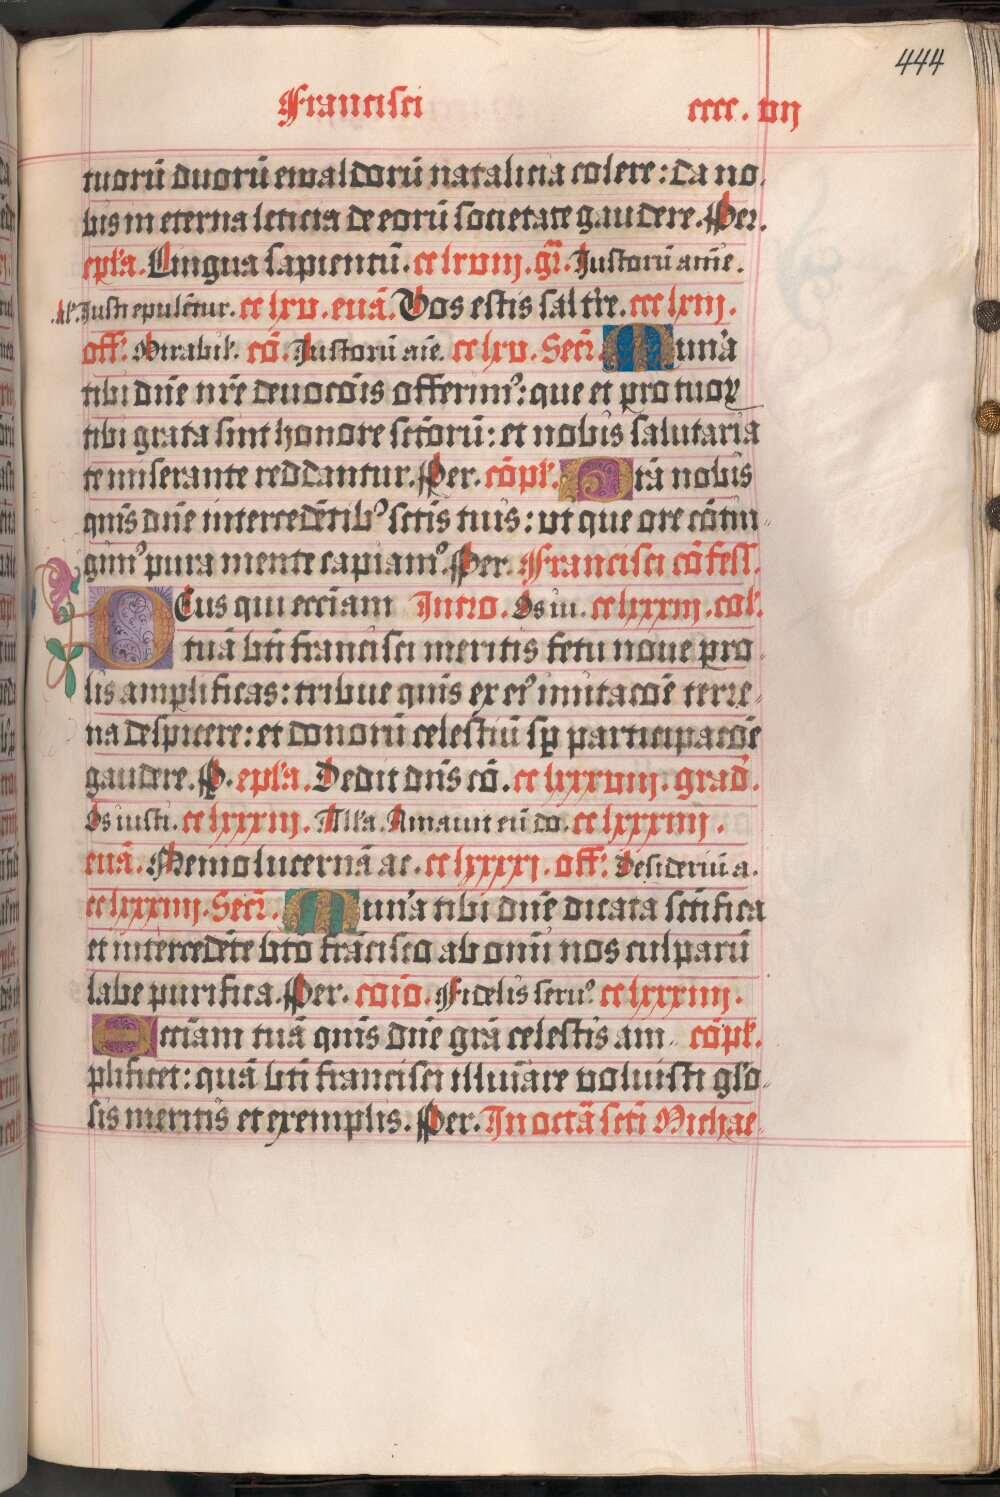 444
Francisci cccc. vij
tuorū duorū ewaldorū natalicia colere: da no,
bis in eterna leticia de eorū societate gaudere. Per.
epl'a. Lingua sapientū. cc lxviij. gr̄. Justorū anīe.
Al'. Justi epulētur. cc lxv. euā. Vos estis sal tr̄e. ccc lxij.
off. Mirabil'. cō. Justorū aīe. cc lxv. Secr̄. Mun'a
tibi dn̄e nr̄e deuocōis offerim᷒: que et pro tuoꝝ
tibi grata sint honore sctōrū: et nobis salutaria
te miserante reddantur. Per. cōpl'. Ста nobis
quīs dn̄e intercedētib᷒ sctīs tuis: ut que ore cōtin-
gim᷒ pura mente capiam᷒. Per. Francisci cōfess.
Deus qui ecc̄iam Intro. Os iu. cc lxxxiij. col'.
tuā bt̄i francisci meritis fetu noue pro-
lis amplificas: tribue quīs ex ei᷒ imitacōe terre-
na despicere: et donorū celestiū sꝑ participacōe
gaudere. P. epl'a. Dedit dn̄s cō. cc lxxxviij. grad̄.
Os iusti. cc lxxxiij. All'a. Amauit eū do. cc lxxxiiij.
euā. Nemo lucernā ac. cc lxxxxj. off. Desideriū a.
cc lxxxiiij. Secr̄. Mun'a tibi dn̄e dicata sctīfica
et intercedēte bt̄o frācisco ab om̄i nos culparū
labe purifica. Per. coīo. Fidelis seru᷒. cc lxxxiiij.
Ecc̄iam tuā quīs dn̄e grā celestis am- cōpl'.
plificet: quā bt̄i francisci illuīare voluisti gl'o-
sis meritis et exemplis. Per. In octā sctī Michae-